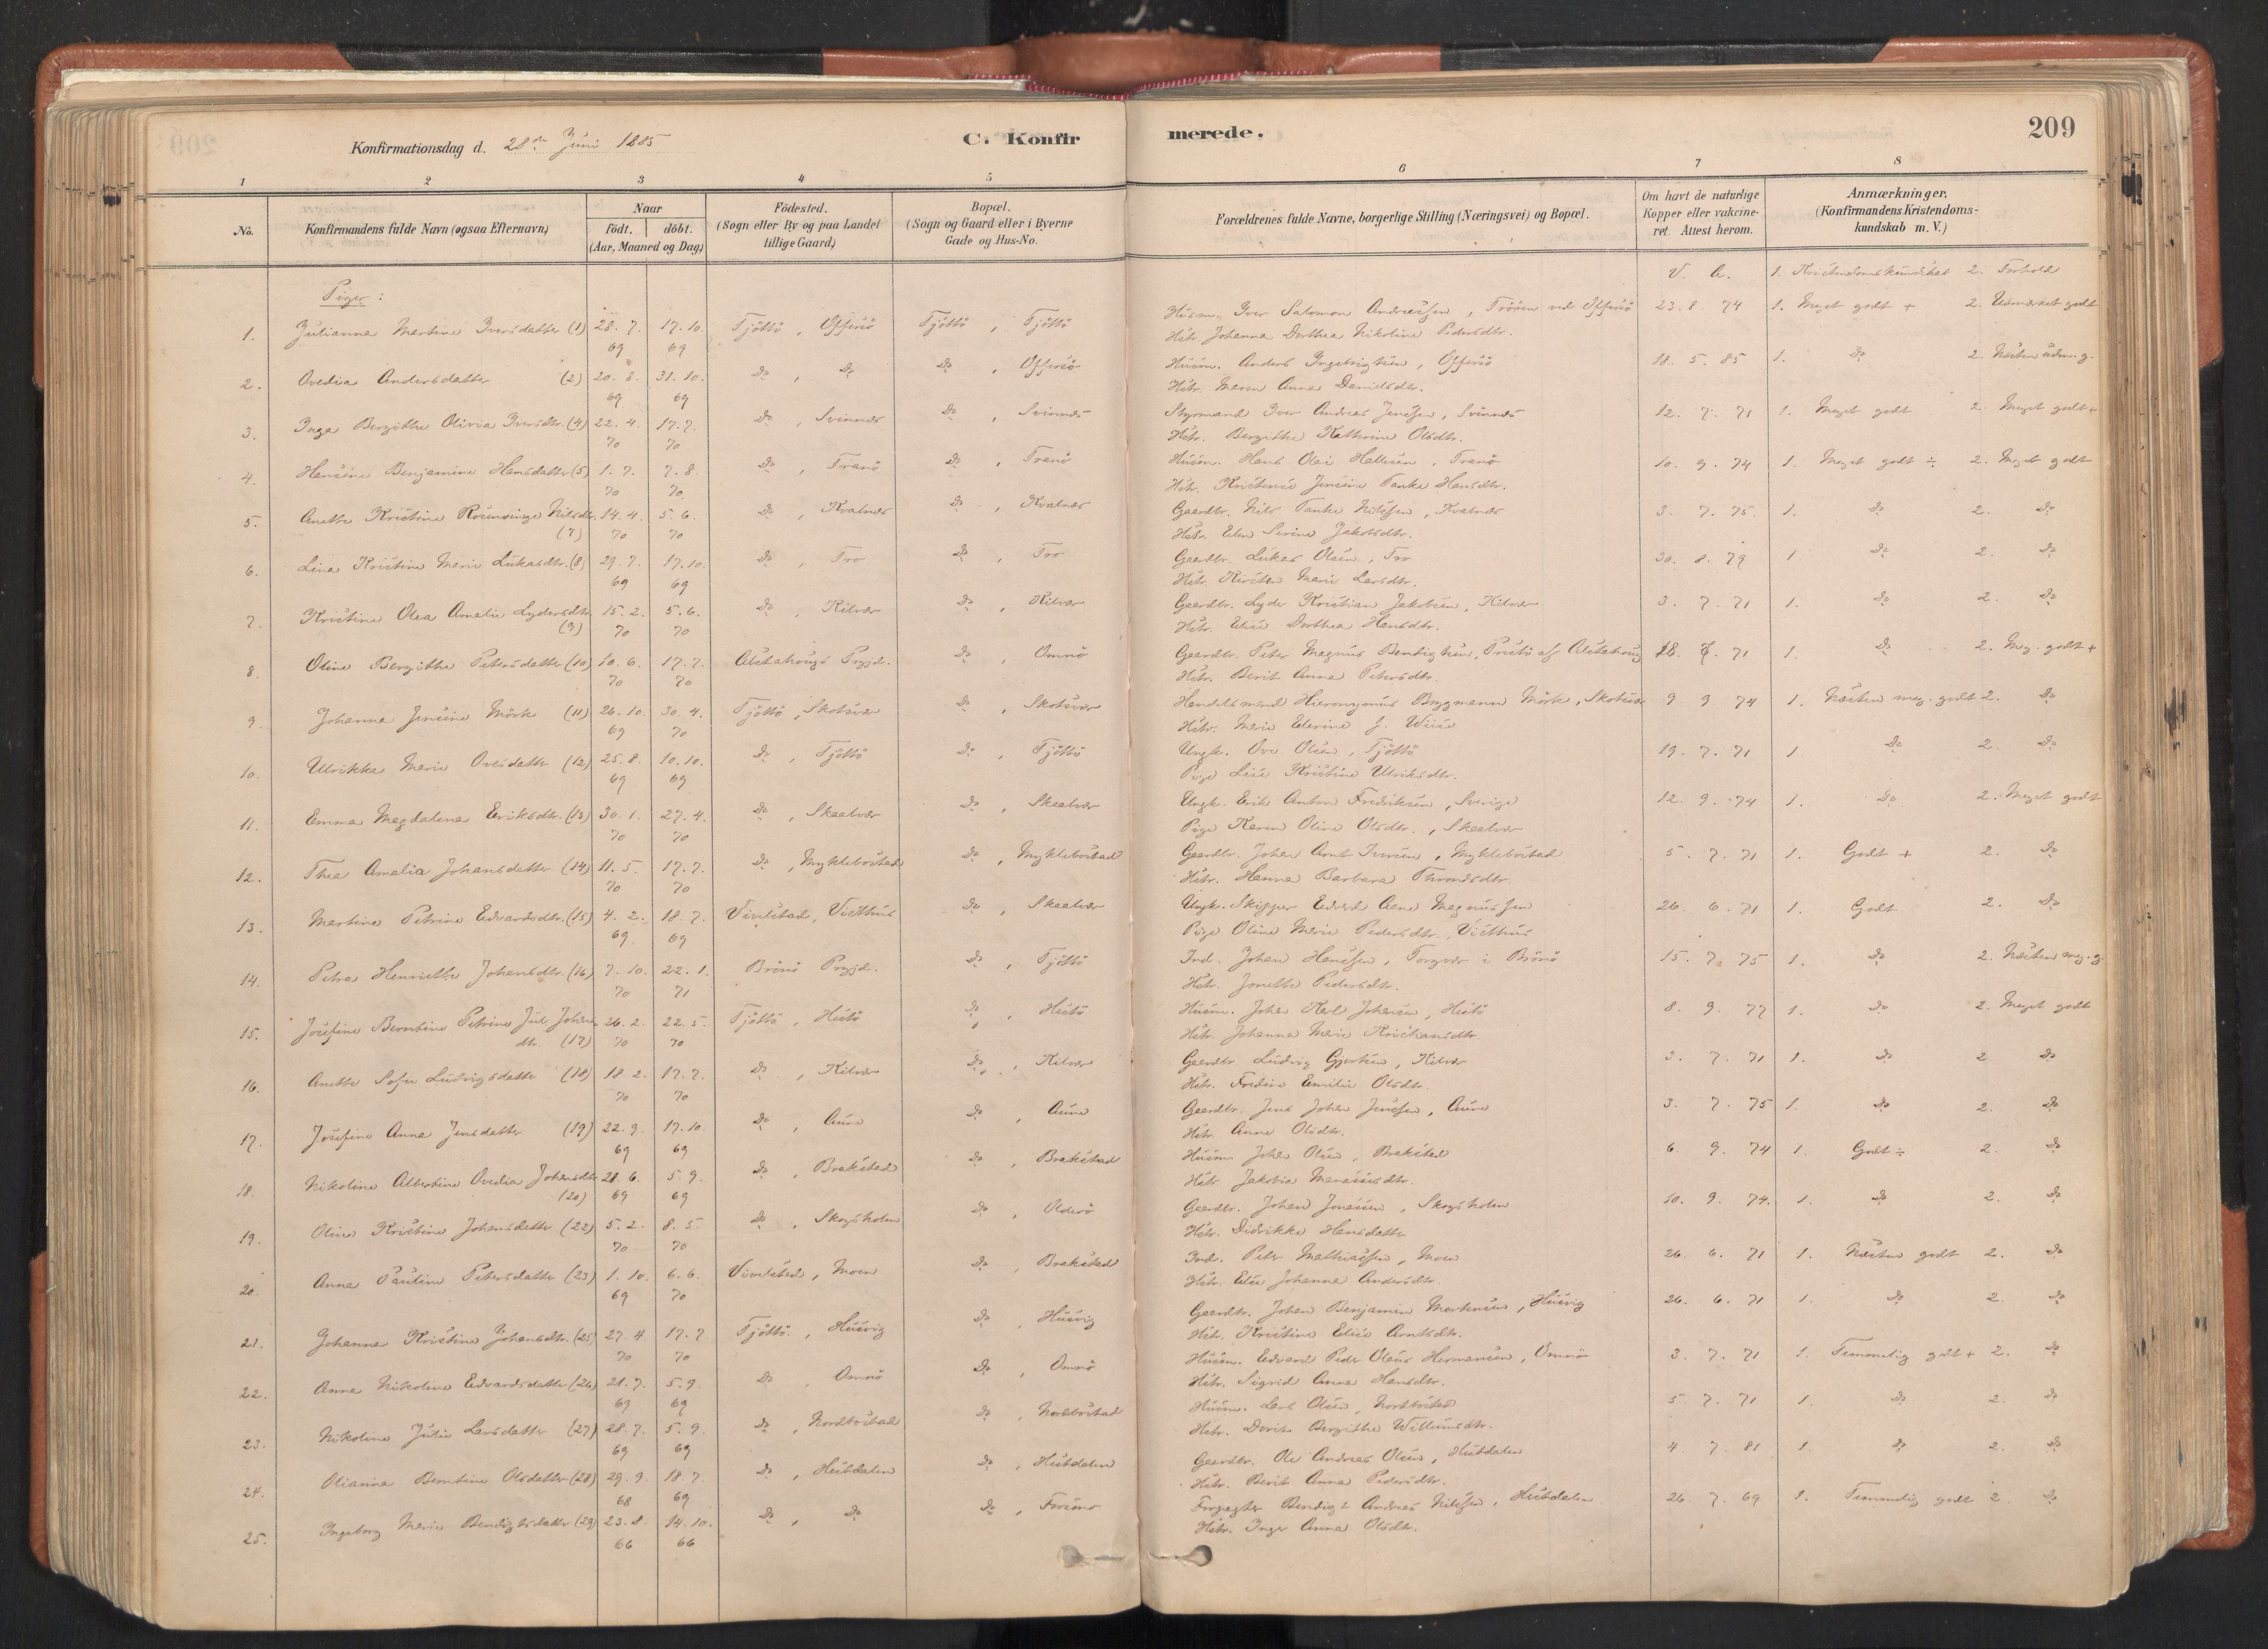 Konfirmationsdag d. 28de Juni 1885
C. Konfirmerede.
209
1 2 3 4 5 6 7 8
No.
Konfirmandens fulde Navn (ogsaa Efternavn)
Naar
födt. döbt.
(Aar, Maaned og Dag)
Födested.
(Sogn eller By og paa Landet
tillige Gaard)
Bopæl.
(Sogn og Gaard eller i Byerne
Gade og Hus-No.
Forældrenes fulde Navne, borgerlige Stilling (Næringsvei) og Bopæl.
Om havt de naturlige
Kopper eller vakcine-
ret Attest herom.
Anmærkninger,
(Konfirmandens Kristendoms-
kundskab m. V.)
V. A. 1. Kristendomskundskab 2. Forhold
Piger:
1. Julianna Martine Iversdatter (1) 28. 7. 69 17. 10. 69 Tjöttö, Offersö Tjöttö, Tjöttö Husm. Iver Salomon Andreassen, ved Offersö 23. 8. 74 1. Meget godt + 2. Udmærket godt
Hstr. Johanna Dorthea Nikoline Pedersdtr.
2. Ovedia Andersdatter (2) 20. 8. 69 31. 10. 69 Do, Do Do, Offersö Husm. Anders Ingebrigtsen, Offersö 18. 5. 85 1. Do 2. Næsten udm. g.
Hstr. Maren Anna Danielsdtr.
3. Inga Bergithe Olivia Iversdtr. (4) 22. 4. 70 17. 7. 70 Do, Svinnes Do, Svinnes Styrmand Iver Andreas Jensen, Svinnes 12. 7. 71 1. Meget godt 2. Meget godt +
Hstr. Bergithe Kathrine Olsdtr.
4. Hansine Benjamine Hansdatter (5) 1. 7. 70 7. 8. 70 Do, Tranö Do, Tranö Husm. Hans Olai Hallesen, Tranö 10. 9. 74 1. Meget godt ÷ 2. Meget godt
Hstr. Jensine Tanke Hansdtr.
5. Anette Kristine Nilsdtr. (7) 14. 4. 70 5. 6. 70 Do, Kvalnes Do, Kvalnes Gaardbr. Nils Tanke Nilssen, Kvalnes 3. 7. 75 1. Do 2. Do
Hstr. Elen Serine Jakobsdtr.
6. Lina Kristine Marie Lukasdtr. (8) 29. 7. 69 17. 10. 69 Do, Tro Do, Tro Gaardbr. Lukas Olsen, Tro 30. 8. 79 1. Do 2. Do
Hstr. Kirsten Marie Larsdtr.
7. Kristine Olea Amalie Lydersdtr. (9) 15. 2. 70 5. 6. 70 Do, Kilvær Do, Kilvær Gaardbr. Lyder Kristian Jakobsen, Kilvær 3. 7. 71 1. Do 2. Do
Hstr. Elise Dorthea Hansdtr.
8. Oline Bergithe Petersdatter (10) 10. 6. 70 17. 7. 70 Alstahougs Prgjd. Do, Omnö Gaardbr. Peter Magnus Bendigtsen, af Alstahoug 18. 7. 71 1. Do 2. Meg. godt +
Hstr. Berit Anna Petersdtr.
9. Johanna Jensine Mörk (11) 26. 10. 69 30. 4. 70 Tjöttö, Skotsvær Do, Skotsvær Handelsmand Hieronymus Brygmann Mörk, Skotsvær 9. 9. 74 1. Næsten meg. godt 2. Do
Hstr. Marie Elerine J. Wiese
10. Ulrikka Marie Ovesdatter (12) 25. 8. 69 10. 10. 69 Do, Tjöttö Do, Tjöttö Ungk. Ove Olsen, Tjöttö 19. 7. 71 1. Do 2. Do
Pige Lise Kristine Ulriksdtr.
11. Emma Magdalena Eriksdtr. (13) 30. 1. 70 27. 4. 70 Do, Skaalvær Do, Skaalvær Ungk. Erik Anton Fredriksen, Sverige 12. 9. 74 1. Do 2. Meget godt
Pige Karen Oline Olsdtr., Skaalvær
12. Thea Amalia Johansdatter (14) 11. 5. 70 17. 7. 70 Do, Myklebostad Do, Myklebostad Gaardbr. Johan Arnt Iversen, Myklebostad 5. 7. 71 1. Godt + 2. Do
Hstr. Hanna Barbara Thronsdtr.
13. Martine Petrine Edvardsdtr. (15) 4. 2. 69 18. 7. 69 Vivelstad, Visthus Do, Skaalvær Ungk. Skipper Edvard Magnussen 26. 6. 71 1. Godt 2. Do
Pige Oline Marie Pedersdtr., Visthus
14. Petra Henriette Johansdtr. (16) 7. 10. 70 22. 1. 71 Brönö Prgjd. Do, Tjöttö Ind. Johan Hanssen, Torgvær i Brönö 15. 7. 75 1. Do 2. Næsten meg. g.
Hstr. Jonette Pedersdtr.
15. Josefine Berntine Petrine Jul Johansdtr. (17) 26. 2. 70 22. 5. 70 Tjöttö, Hestö Do, Hestö Husm. Johan Karl Johansen, Hestö 8. 9. 77 1. Do 2. Meget godt
Hstr. Johanna Marie Kristiansdtr.
16. Anette Sofie Ludvigsdatter (18) 18. 2. 70 17. 7. 70 Do, Kilvær Do, Kilvær Gaardbr. Ludvig Gjertsen, Kilvær 3. 7. 71 1. Do 2. Do
Hstr. Fredine Emilie Olsdtr.
17. Josefine Anna Jensdatter (19) 22. 9. 69 17. 10. 69 Do, Aune Do, Aune Gaardbr. Jens Johan Jenssen, Aune 3. 7. 75 1. Do 2. Do
Hstr. Anne Olsdtr.
18. Nikoline Albertine Ovedia Johansdtr. (20) 28. 6. 69 5. 9. 69 Do, Brakstad Do, Brakstad Husm. Johan Olsen, Brakstad 6. 9. 74 1. Godt ÷ 2. Do
Hstr. Jakobia
19. Oline Kristine Johansdatter (22) 5. 2. 70 8. 5. 70 Do, Skogsholm Do, Olderö Gaardbr. Johan Jonassen, Skogsholm 10. 9. 74. 1. Do 2. Do
Hstr. Didrikke Hansdatter
20. Anna Pauline Petersdatter (23) 1. 10. 69 6. 6. 70 Vivelsted, Moen Do, Brakstad Ind. Peter Mathiassen, Moen 26. 6. 71 1. Næsten godt 2. Do
Hstr. Else Johanna Andersdtr.
21. Johanna Kristine Johansdtr. (25) 27. 4. 70 17. 7. 70 Tjöttö, Husvig Do, Husvig Gaardbr. Johan Benjamin Mortensen, Husvig 26. 6. 71 1. Do 2. Do
Hstr. Kristine Elise Arntsdtr.
22. Anna Nikoline Edvardsdatter (26) 21. 7. 69 5. 9. 69 Do, Omnö Do, Omnö Husm. Edvard Peder Olaus Hermansen, Omnö 3. 7. 71 1. Temmelig godt + 2. Do
Hstr. Sigrid Anna Hansdtr.
23. Nikoline Julie Larsdatter (27) 28. 7. 69 5. 9. 69 Do, Nordbostad Do, Nordbostad Husm. Lars Olsen, Nordbostad 5. 7. 71 1. Do 2. Do
Hstr. Dorit Bergithe Willumsdtr.
24. Olianna Berntine Olsdatter (28) 29. 9. 68 18. 7. 69 Do, Hestdalen Do, Hestdalen Gaardbr. Ole Andreas Olsen, Hestdalen 4. 7. 81 1. Do 2. Do
Hstr. Berit Anna Pedersdtr.
25. Ingeborg Marie Bendigtsdatter (29) 23. 8. 66 14. 10. 66 Do, Do Do, Forpagter Bendigt Andreas Nilssen, Hestdalen 26. 7. 69 1. Temmelig godt 2 Do
Hstr. Inger Anna Olsdtr.